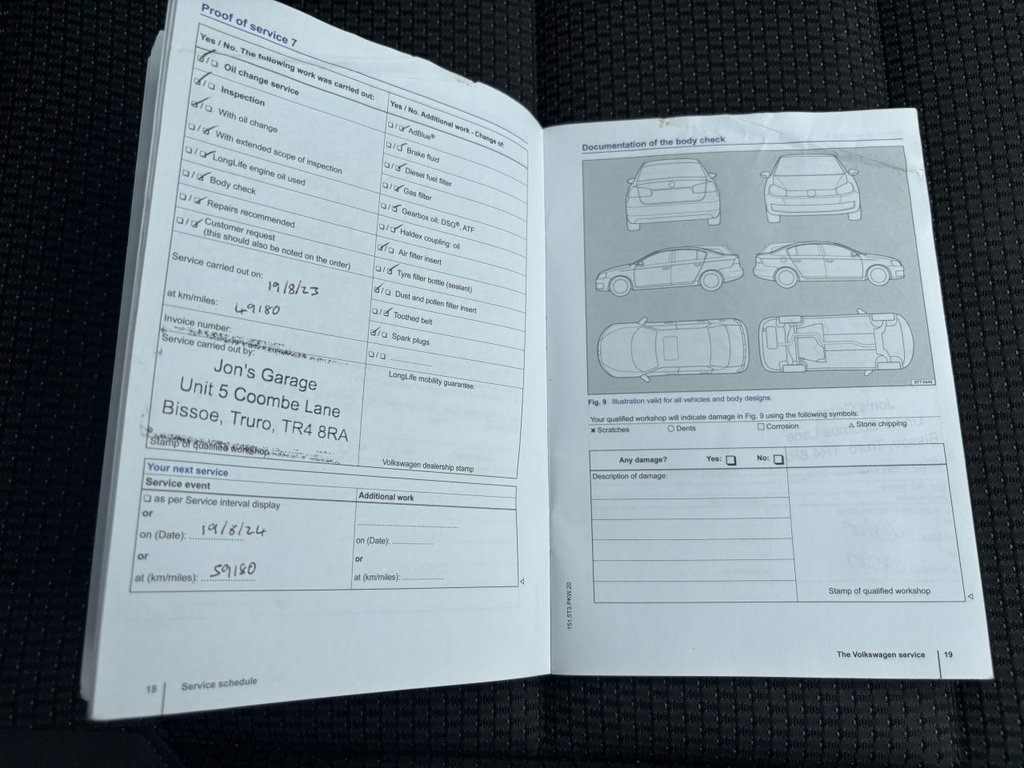 Proof of service 7
Yes / No. The following work was carried out:
☑/☐ Oil change service
☑/☐ Inspection
☑/☐ With oil change
☐/☑ With extended scope of inspection
☐/☑ LongLife engine oil used
☐/☑ Body check
☐/☑ Repairs recommended
☐/☑ Customer request
(this should also be noted on the order)
Service carried out on:
19/8/23
at km/miles:
49180
Invoice number:
Service carried out by:
Jon's Garage
Unit 5 Coombe Lane
Bissoe, Truro, TR4 8RA
Stamp of qualified workshop
Yes / No. Additional work - Change of:
☐/☑ AdBlue®
☐/☑ Brake fluid
☐/☑ Diesel fuel filter
☐/☑ Gas filter
☐/☑ Gearbox oil: DSG®, ATF
☐/☑ Haldex coupling: oil
☑/☐ Air filter insert
☐/☑ Tyre filler bottle (sealant)
☑/☐ Dust and pollen filter insert
☐/☑ Toothed belt
☑/☐ Spark plugs
☐/☐ ....................
LongLife mobility guarantee:
Volkswagen dealership stamp
Your next service
Service event
☐ as per Service interval display
or
on (Date): 19/8/24
or
at (km/miles): 59180
Additional work
on (Date): ...............
or
at (km/miles): ...............
18 Service schedule
Documentation of the body check
BTT-0449
Fig. 9 Illustration valid for all vehicles and body designs
Your qualified workshop will indicate damage in Fig. 9 using the following symbols:
× Scratches ○ Dents □ Corrosion △ Stone chipping
Any damage? Yes: ☐ No: ☐
Description of damage:
Stamp of qualified workshop
151.5T3.PKW.20
The Volkswagen service 19